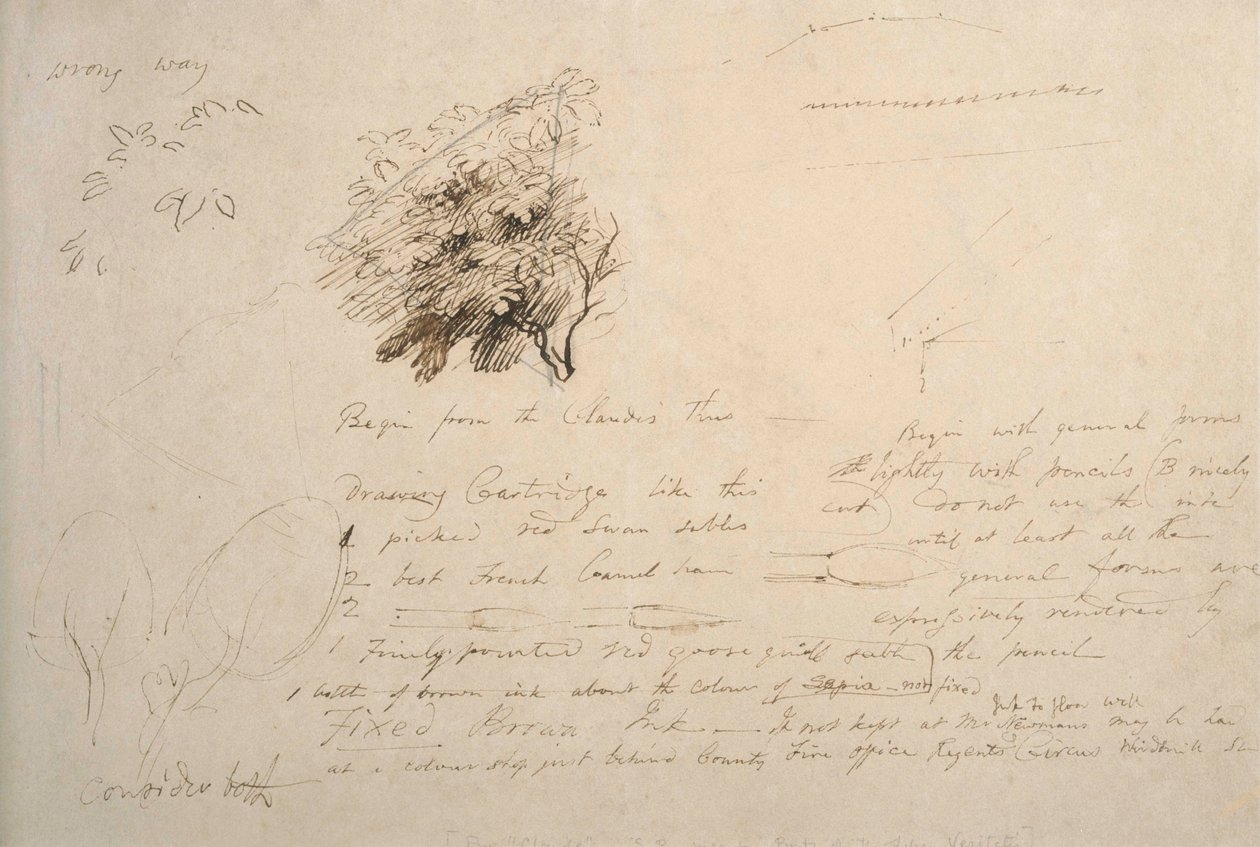 wrong way
Begin from the Claudes Thus
Drawing Cartridge like this
picked red Swan sables
2 best French Camel hair
2
1 Finely pointed red goose quill sable
1 bottle of brown ink about the colour of Sepia - not fixed
Fixed Brown Ink — If not kept at Mr Newmans may be had
Ink to flow well
at a colour shop just behind County Fire office Regents Circus Windmill
Consider both
Begin with general forms
lightly with pencils (B nicely
cut) do not use the ink
until at least all the
general forms are
expressively rendered by
the pencil